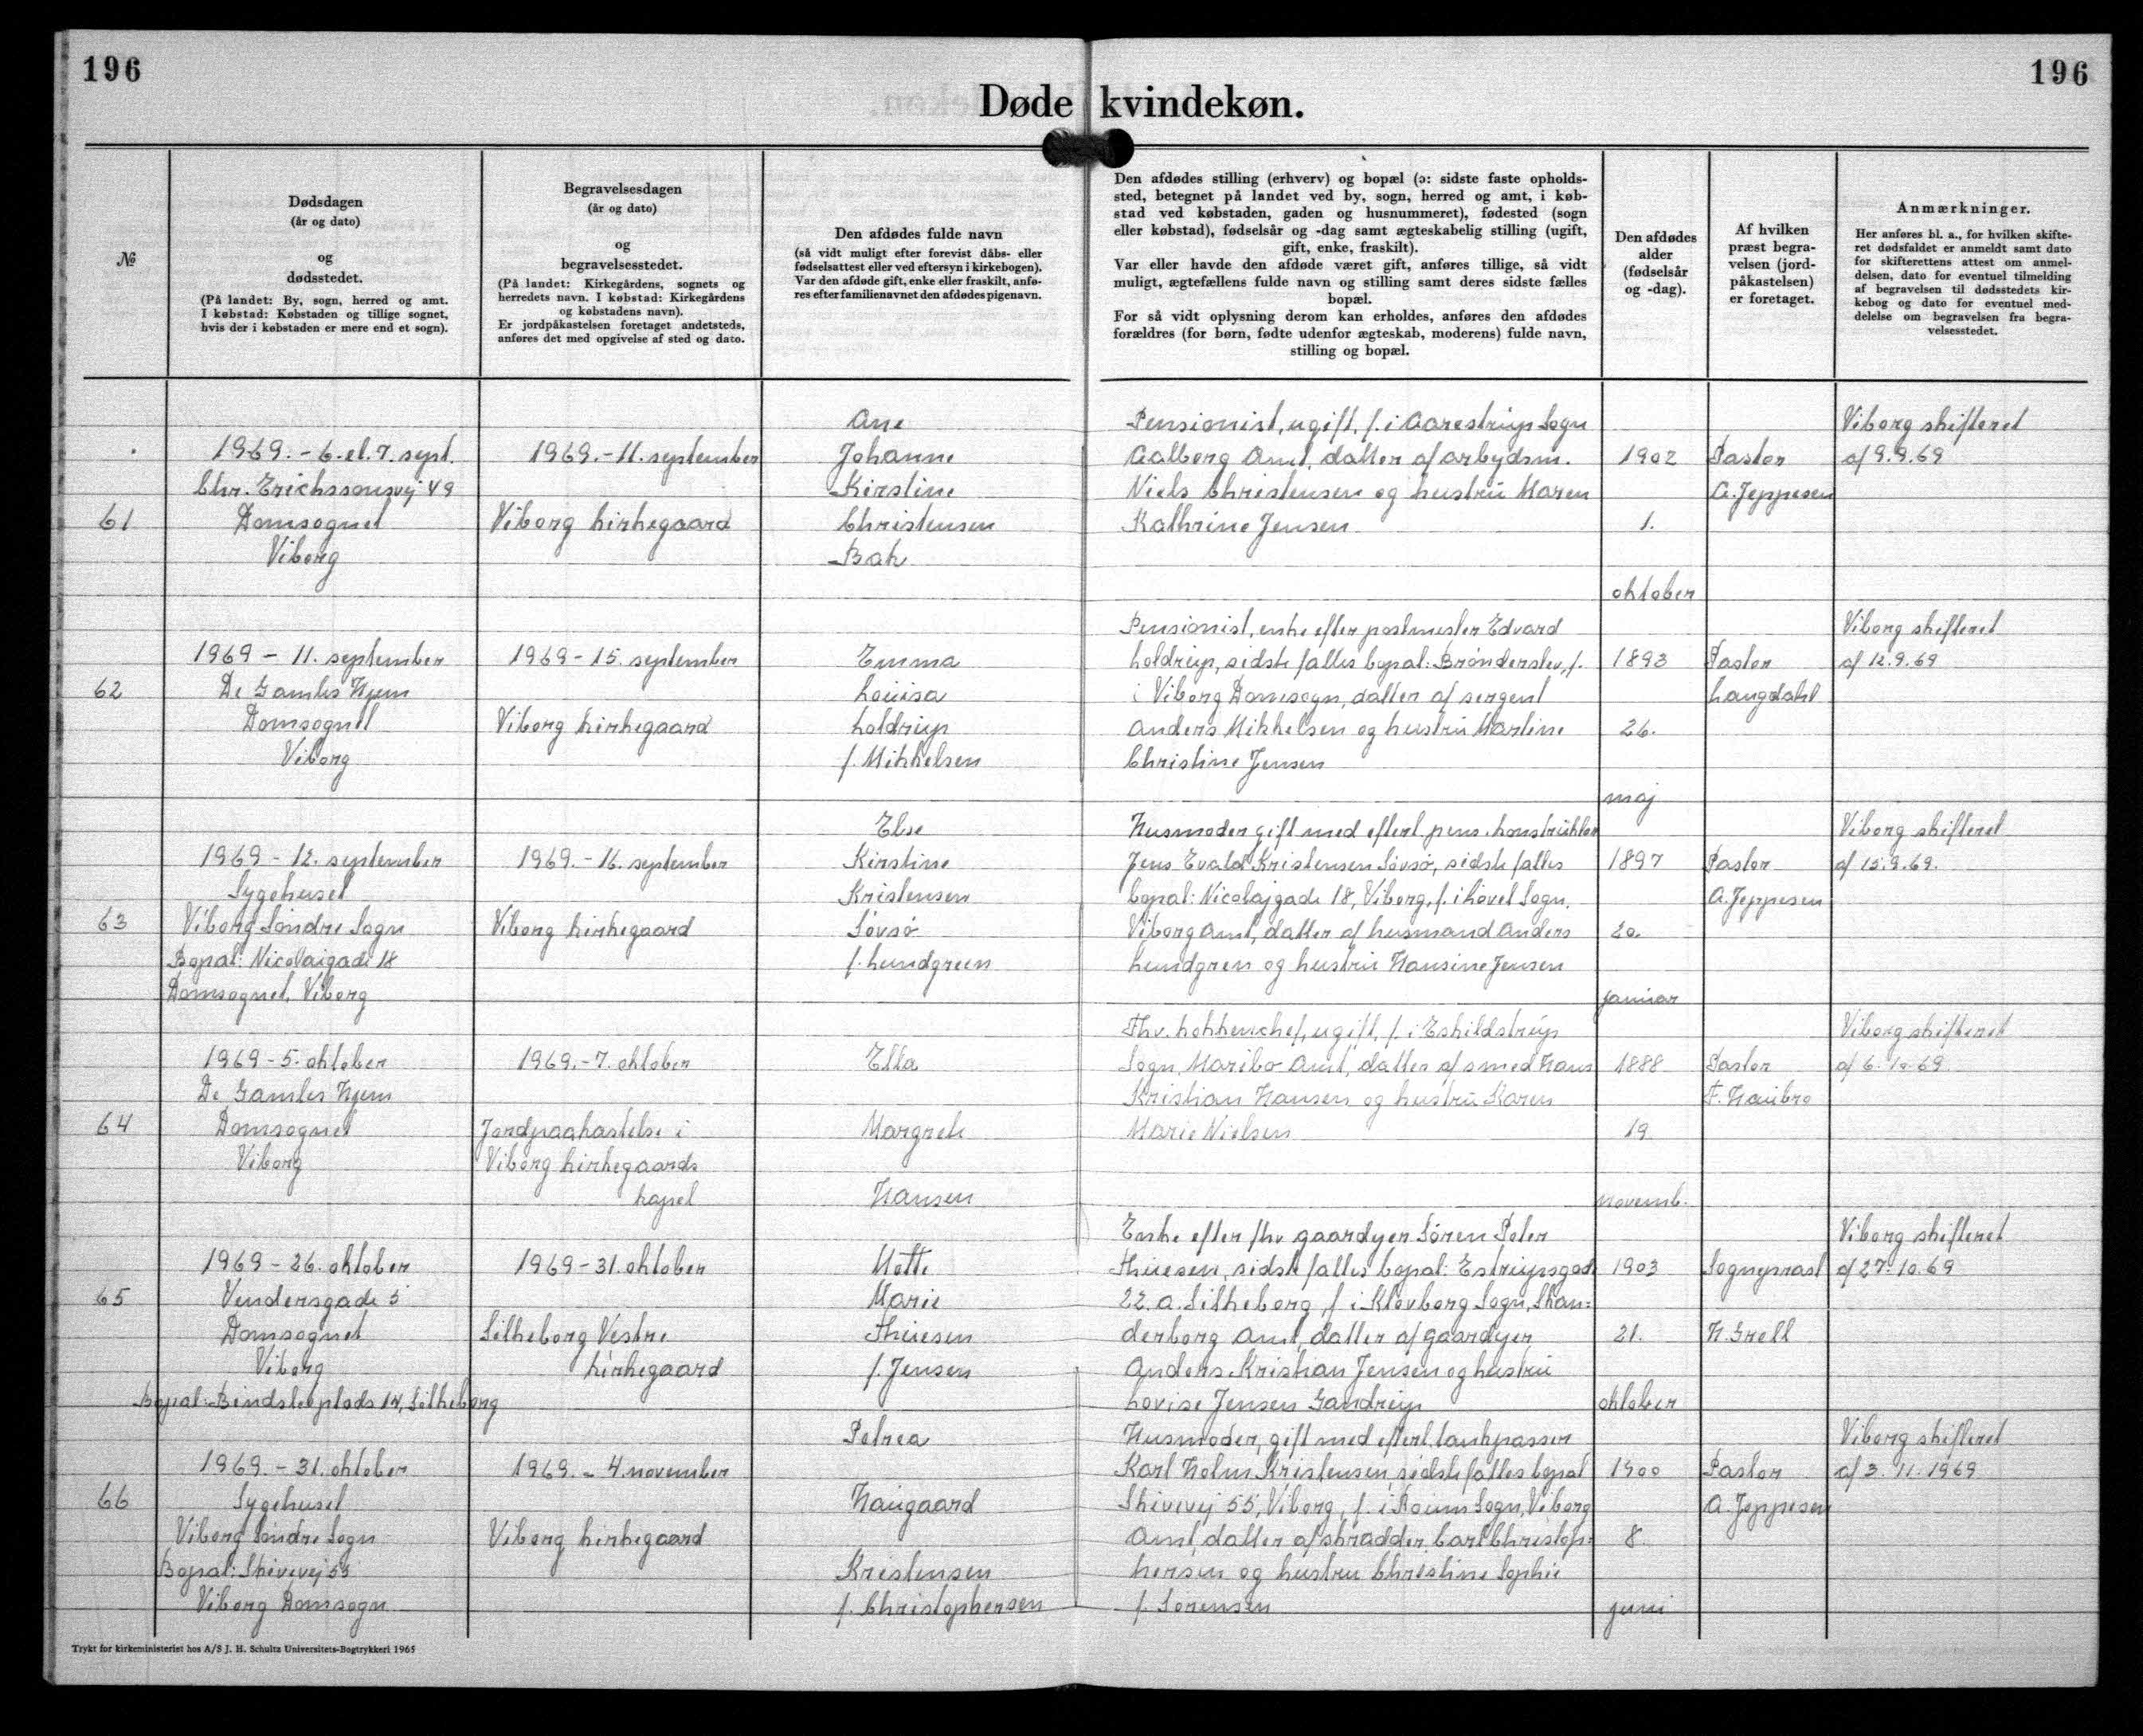 196
196
Døde kvindekøn.
№
Dødsdagen
(år og dato)
og
dødsstedet.
(På landet: By, sogn, herred og amt.
I købstad: Købstaden og tillige sognet,
hvis der i købstaden er mere end et sogn).
Begravelsesdagen
(år og dato)
og
begravelsesstedet.
(På landet: Kirkegårdens, sognets og
herredets navn. I købstad: Kirkegårdens
og købstadens navn).
Er jordpåkastelsen foretaget andetsteds,
anføres det med opgivelse af sted og dato.
Den afdødes fulde navn
(så vidt muligt efter forevist dåbs- eller
fødselsattest eller ved eftersyn i kirkebogen).
Var den afdøde gift, enke eller fraskilt, anfø-
res efter familienavnet den afdødes pigenavn.
Den afdødes stilling (erhverv) og bopæl (ɔ: sidste faste opholds-
sted, betegnet på landet ved by, sogn, herred og amt, i køb-
stad ved købstaden, gaden og husnummeret), fødested (sogn
eller købstad), fødselsår og -dag samt ægteskabelig stilling (ugift,
gift, enke, fraskilt).
Var eller havde den afdøde været gift, anføres tillige, så vidt
muligt, ægtefællens fulde navn og stilling samt deres sidste fælles
bopæl.
For så vidt oplysning derom kan erholdes, anføres den afdødes
forældres (for børn, fødte udenfor ægteskab, moderens) fulde navn,
stilling og bopæl.
Den afdødes
alder
(fødselsår
og -dag).
Af hvilken
præst begra-
velsen (jord-
påkastelsen)
er foretaget.
Anmærkninger.
Her anføres bl. a., for hvilken skifte-
ret dødsfaldet er anmeldt samt dato
for skifterettens attest om anmel-
delsen, dato for eventuel tilmelding
af begravelsen til dødsstedets kir-
kebog og dato for eventuel med-
delelse om begravelsen fra begra-
velsesstedet.
61
1969.-6. el. 7. sept.
Chr. Erichssonsvej 49
Domsognet
Viborg
1969.-11. september
Viborg kirkegaard
Ane
Johanne
Kirstine
Christensen
Bak
Pensionist, ugift, f. i Aarestrup Sogn
Aalborg Amt, datter af arbejdsm.
Niels Christensen og hustru Maren
Kathrine Jensen
1902
1.
oktober
Pastor
A. Jeppesen
Viborg skifteret
af 9.9.69
62
1969 - 11. september
De Gamles Hjem
Domsognet
Viborg
1969 - 15. september
Viborg kirkegaard
Emma
Louisa
Loldrup
f. Mikkelsen
Pensionist, enke efter postmester Edvard
Loldrup, sidste fælles bopæl: Brønderslev, f.
i Viborg Domsogn, datter af sergent
Anders Mikkelsen og hustru Martine
Christine Jensen
1893
26.
maj
Pastor
Langdahl
Viborg skifteret
af 12.9.69
63
1969 - 12. september
Sygehuset
Viborg Søndre Sogn
Bopæl: Nicolaigade 18
Domsognet, Viborg
1969. - 16. september
Viborg kirkegaard
Else
Kirstine
Kristensen
Søvsø
f. Lundgreen
Husmoder gift med efterl. pens. konstruktør
Jens Evald Kristensen Søvsø, sidste fælles
bopæl: Nicolajgade 18, Viborg, f. i Lovel Sogn,
Viborg Amt, datter af husmand Anders
Lundgren og hustru Hansine Jensen
1897
20.
januar
Pastor
A. Jeppesen
Viborg skifteret
af 15.9.69.
64
1969 - 5. oktober
De Gamles Hjem
Domsognet
Viborg
1969. - 7. oktober
Jordpaakastelse i
Viborg kirkegaards
kapel
Ella
Margrete
Hansen
Fhv. køkkenchef, ugift, f. i Eskildstrup
Sogn, Maribo Amt, datter af smed Hans
Kristian Hansen og hustru Karen
Marie Nielsen
1888
19
novemb.
Pastor
F. Haubro
Viborg skifteret
af 6.10.69
65
1969 - 26. oktober
Vendersgade 5
Domsognet
Viborg
Bopæl: Bindslevplads 14, Silkeborg
1969 - 31. oktober
Silkeborg Vestre
kirkegaard
Mette
Marie
Thuesen
f. Jensen
Enke efter fhv. gaardejer Søren Peter
Thuesen, sidste fælles bopæl: Estrupsgade
22. a. Silkeborg, f. i Klovborg Sogn, Skan=
derborg Amt, datter af gaardejer
Anders Kristian Jensen og hustru
Lovise Jensen Gandrup
1903
21.
oktober
Sognepræst
N. Grell
Viborg skifteret
af 27.10.69
66
1969. - 31. oktober
Sygehuset
Viborg Søndre Sogn
Bopæl: Skivevej 55
Viborg Domsogn
1969. - 4. november
Viborg kirkegaard
Petrea
Haugaard
Kristensen
f. Christophersen
Husmoder, gift med efterl. tankpasser
Karl Holm Kristensen, sidste fælles bopæl
Skivevej 55, Viborg, f. i Roum Sogn, Viborg
Amt, datter af skrædder Carl Christop=
hersen og hustru Christine Sophie
f. Sørensen
1900
8.
juni
Pastor
A. Jeppesen
Viborg skifteret
af 3.11.1969
Trykt for kirkeministeriet hos A/S J. H. Schultz Universitets-Bogtrykkeri 1965